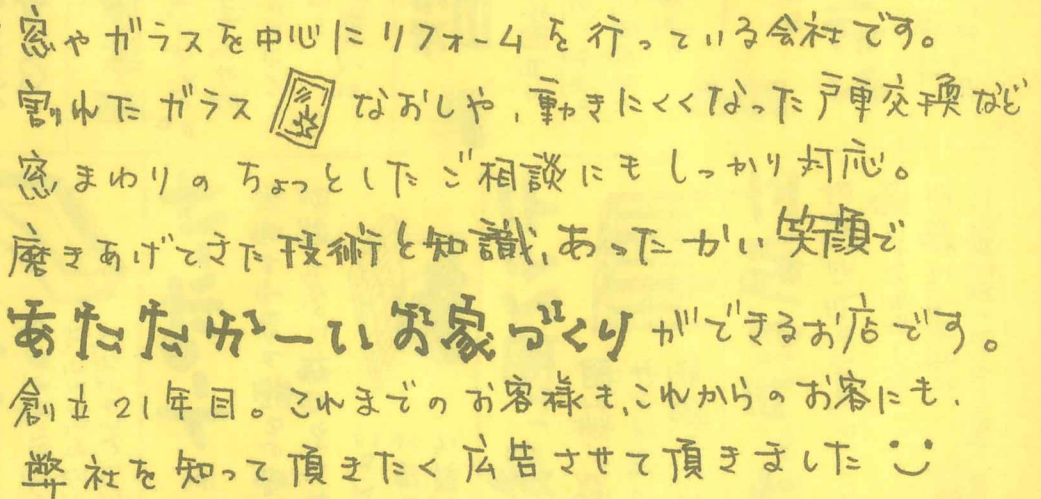 窓やガラスを中心にリフォームを行っている会社です。
割れたガラスなおしや、動きにくくなった戸車交換など
窓まわりのちょっとしたご相談にもしっかり対応。
磨きあげてきた技術と知識、あったかい笑顔で
あたたかーいお家づくりができるお店です。
創立21年目。これまでのお客様も、これからのお客にも、
弊社を知って頂きたく広告させて頂きました